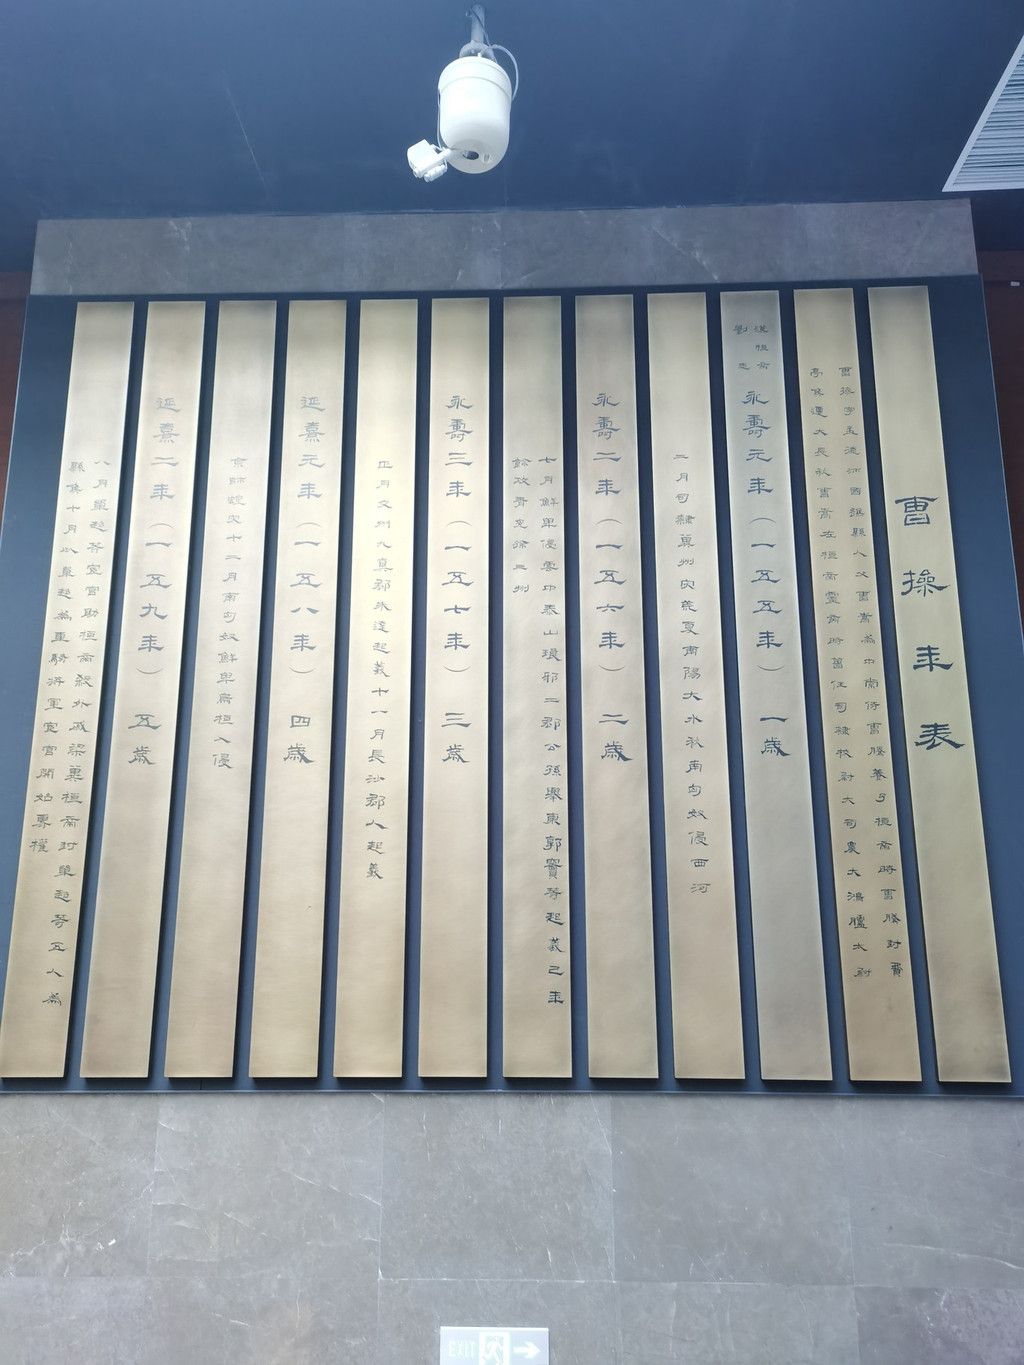 曹操年表
曹操字孟德沛國譙縣人父曹嵩為中常侍曹騰養子桓帝時曹騰封費
亭侯遷大長秋曹嵩在桓帝靈帝時曾任司隸校尉大司農大鴻臚太尉
漢桓帝
劉志
永壽元年（一五五年）一歲
二月司隸冀州灾荒夏南陽大水秋南匈奴侵西河
永壽二年（一五六年）二歲
七月鮮卑侵雲中泰山琅邪二郡公孫舉東郭竇等起義己年
餘攻青兗徐三州
永壽三年（一五七年）三歲
正月交州九真郡朱達起義十一月長沙郡人起義
延熹元年（一五八年）四歲
京師蝗灾十二月南匈奴鮮卑烏桓入侵
延熹二年（一五九年）五歲
八月單超等宦官助桓帝殺外戚梁冀桓帝封單超等五人為
縣侯十月以單超為車騎將軍宦官開始專權
EXIT